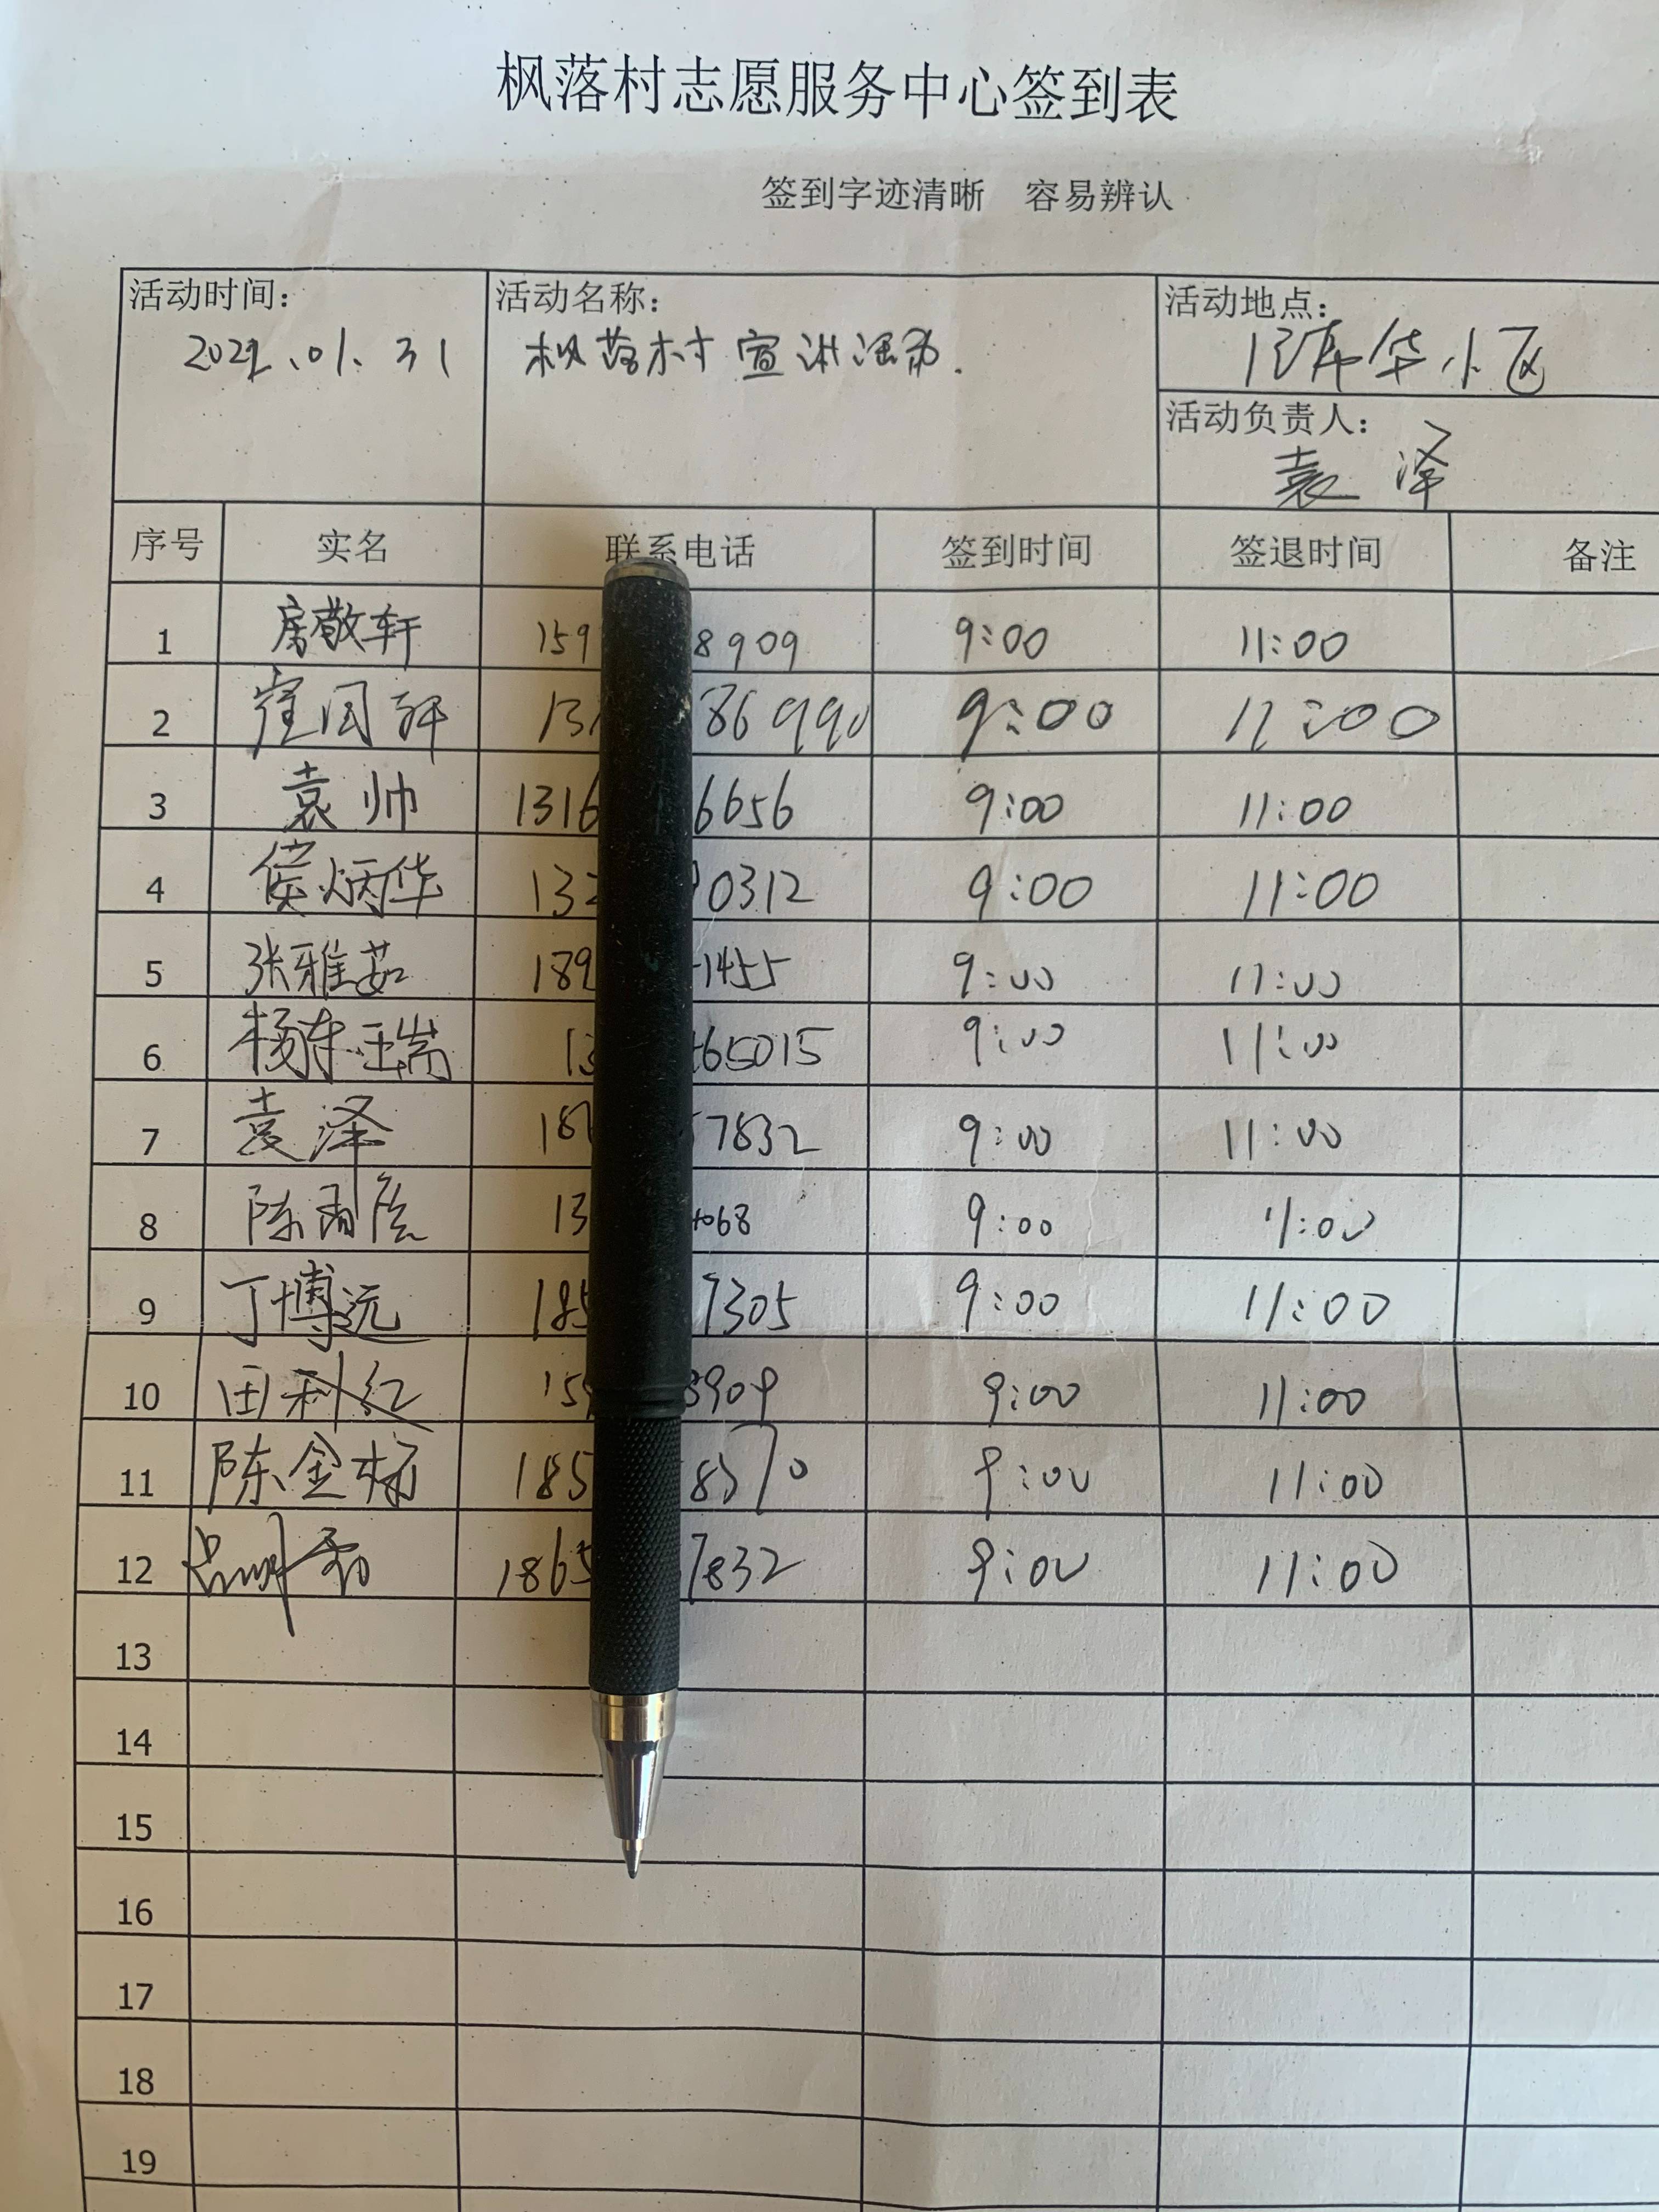 枫落村志愿服务中心签到表
签到字迹清晰 容易辨认
活动时间： 活动名称： 活动地点：
2022.01.31 枫落村宣讲活动. 华小区
活动负责人：
袁泽
序号 实名 联系电话 签到时间 签退时间 备注
1 房敬轩 159 8909 9:00 11:00
2 13 86990 9:00 11:00
3 袁帅 1316 6656 9:00 11:00
4 侯炳华 132 0312 9:00 11:00
5 张雅茹 189 1455 9:00 11:00
6 杨东瑞 13 65015 9:00 11:00
7 袁泽 18 7832 9:00 11:00
8 陈雨 13 068 9:00 11:00
9 丁博远 185 7305 9:00 11:00
10 田利红 159 8909 9:00 11:00
11 陈金标 185 8370 9:00 11:00
12 1865 7832 9:00 11:00
13
14
15
16
17
18
19